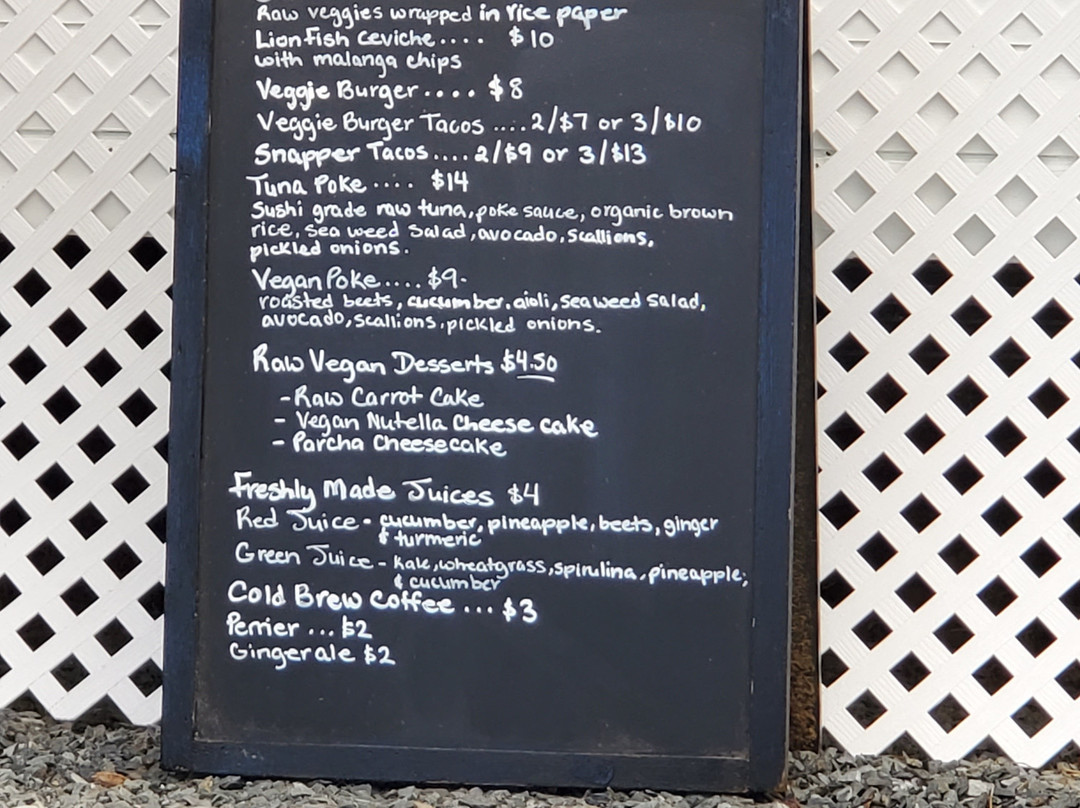 Raw veggies wrapped in rice paper
Lionfish Ceviche.... $10
with malanga chips
Veggie Burger.... $8
Veggie Burger Tacos ....2/$7 or 3/$10
Snapper Tacos....2/$9 or 3/$13
Tuna Poke.... $14
Sushi grade raw tuna, poke sauce, organic brown
rice, sea weed salad, avocado, scallions,
pickled onions.
Vegan Poke....$9-
roasted beets, cucumber, aioli, seaweed salad,
avocado, scallions, pickled onions.
Raw Vegan Desserts $4.50
- Raw Carrot Cake
- Vegan Nutella Cheese cake
- Parcha Cheesecake
Freshly Made Juices $4
Red Juice - cucumber, pineapple, beets, ginger
& turmeric
Green Juice - kale, wheatgrass, spirulina, pineapple,
& cucumber
Cold Brew Coffee ... $3
Perrier ... $2
Gingerale $2